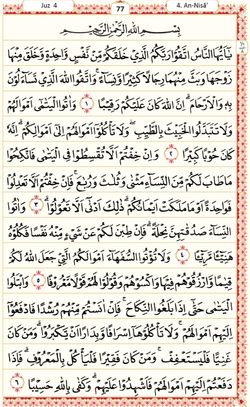 Juz 4
77
4. An-Nisā'
بِسْمِ اللّٰهِ الرَّحْمٰنِ الرَّحِيْمِ
يٰٓاَيُّهَا النَّاسُ اتَّقُوْا رَبَّكُمُ الَّذِيْ خَلَقَكُمْ مِّنْ نَّفْسٍ وَّاحِدَةٍ وَّخَلَقَ مِنْهَا
زَوْجَهَا وَبَثَّ مِنْهُمَا رِجَالًا كَثِيْرًا وَّنِسَاۤءً ۚ وَاتَّقُوا اللّٰهَ الَّذِيْ تَسَاۤءَلُوْنَ
بِهٖ وَالْاَرْحَامَ ۗ اِنَّ اللّٰهَ كَانَ عَلَيْكُمْ رَقِيْبًا ١ وَاٰتُوا الْيَتٰمٰٓى اَمْوَالَهُمْ
وَلَا تَتَبَدَّلُوا الْخَبِيْثَ بِالطَّيِّبِ ۖ وَلَا تَأْكُلُوْٓا اَمْوَالَهُمْ اِلٰٓى اَمْوَالِكُمْ ۗ اِنَّهٗ
كَانَ حُوْبًا كَبِيْرًا ٢ وَاِنْ خِفْتُمْ اَلَّا تُقْسِطُوْا فِى الْيَتٰمٰى فَانْكِحُوْا
مَا طَابَ لَكُمْ مِّنَ النِّسَاۤءِ مَثْنٰى وَثُلٰثَ وَرُبٰعَ ۚ فَاِنْ خِفْتُمْ اَلَّا تَعْدِلُوْا
فَوَاحِدَةً اَوْ مَا مَلَكَتْ اَيْمَانُكُمْ ۗ ذٰلِكَ اَدْنٰٓى اَلَّا تَعُوْلُوْا ٣ وَاٰتُوا
النِّسَاۤءَ صَدُقٰتِهِنَّ نِحْلَةً ۗ فَاِنْ طِبْنَ لَكُمْ عَنْ شَيْءٍ مِّنْهُ نَفْسًا فَكُلُوْهُ
هَنِيْۤـًٔا مَّرِيْۤـًٔا ٤ وَلَا تُؤْتُوا السُّفَهَاۤءَ اَمْوَالَكُمُ الَّتِيْ جَعَلَ اللّٰهُ لَكُمْ
قِيٰمًا وَّارْزُقُوْهُمْ فِيْهَا وَاكْسُوْهُمْ وَقُوْلُوْا لَهُمْ قَوْلًا مَّعْرُوْفًا ٥ وَابْتَلُوا
الْيَتٰمٰى حَتّٰىٓ اِذَا بَلَغُوا النِّكَاحَ ۚ فَاِنْ اٰنَسْتُمْ مِّنْهُمْ رُشْدًا فَادْفَعُوْٓا
اِلَيْهِمْ اَمْوَالَهُمْ ۚ وَلَا تَأْكُلُوْهَآ اِسْرَافًا وَّبِدَارًا اَنْ يَّكْبَرُوْا ۗ وَمَنْ كَانَ
غَنِيًّا فَلْيَسْتَعْفِفْ ۚ وَمَنْ كَانَ فَقِيْرًا فَلْيَأْكُلْ بِالْمَعْرُوْفِ ۗ فَاِذَا
دَفَعْتُمْ اِلَيْهِمْ اَمْوَالَهُمْ فَاَشْهِدُوْا عَلَيْهِمْ ۗ وَكَفٰى بِاللّٰهِ حَسِيْبًا ٦